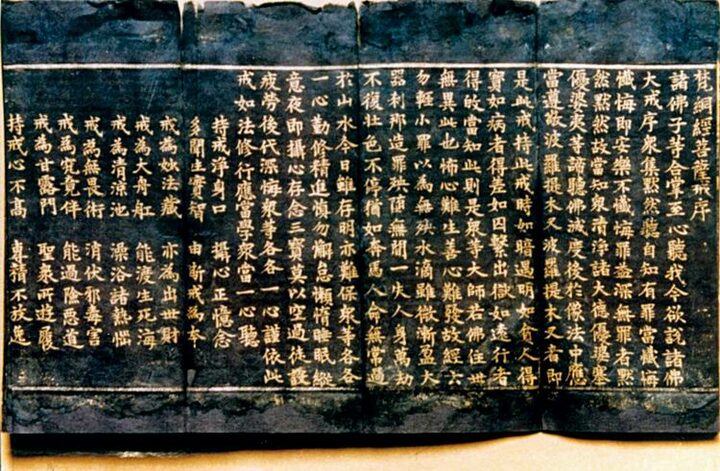 梵網經菩薩戒序
諸佛子等合掌至心聽我今欲說諸佛
大戒序衆集黙然聽自知有罪當懺悔
懺悔即安樂不懺悔罪益深無罪者黙
然黙然故當知衆清淨諸大德優婆塞
優婆夷等諦聽佛滅度後於像法中應
當遵敬波羅提木叉波羅提木叉者即
是此戒持此戒時如暗遇明如貧人得
寶如病者得差如囚繫出獄如遠行者
得敀當知此則是衆等大師若佛住世
無異此也怖心難生善心難發故經云
勿輕小罪以為無殃水滴雖微漸盈大
器刹那造罪殃墮無間一失人身萬劫
不復壯色不停猶如奔馬人命無常過
於山水今日雖存明亦難保衆等各各
一心勤修精進慎勿懈怠懶惰睡眠縱
意夜即攝心存念三寶莫以空過徒設
疲勞後代深悔衆等各各一心謹依此
戒如法修行應當學衆當一心聽
持戒淨身口 攝心正憶念
多聞生實智 由斯戒為本
戒為妙法藏 亦為出世財
戒為大舟舡 能渡生死海
戒為清涼池 澡浴諸熱惱
戒為無畏術 消伏邪毒害
戒為究竟伴 能過險惡道
戒為甘露門 聖衆所遊履
持戒心不高 專精不放逸